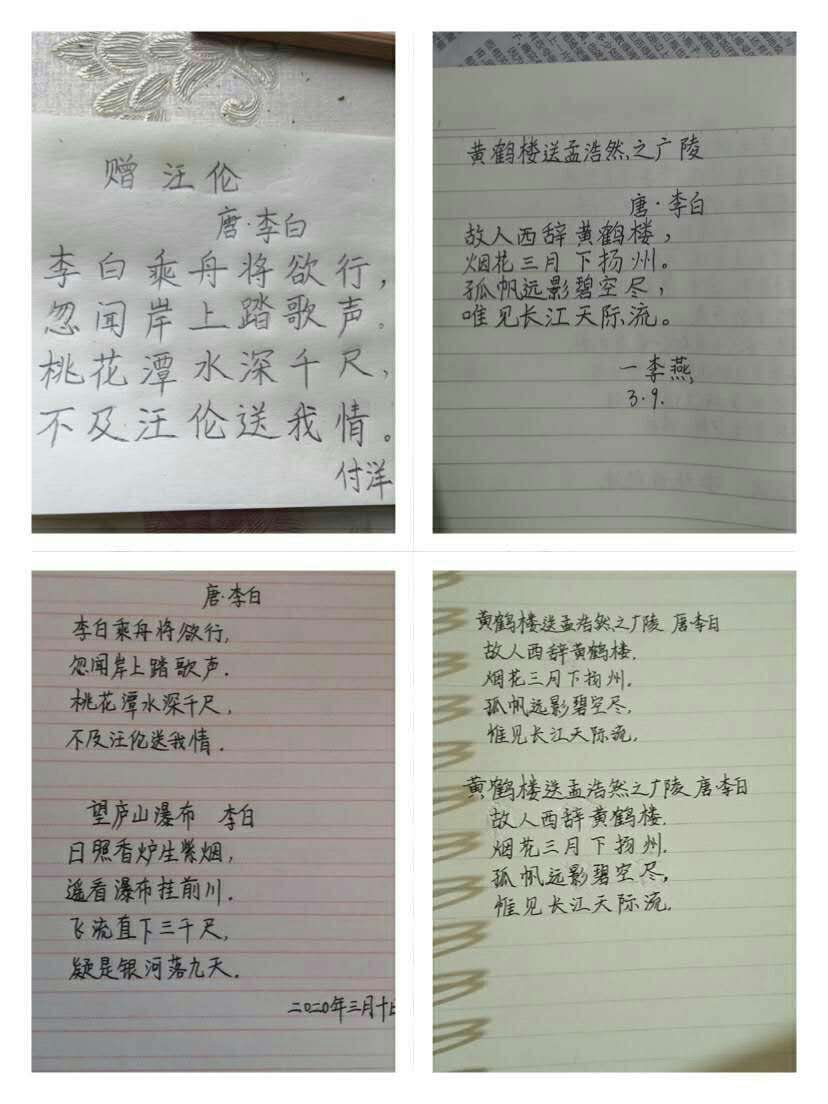 赠汪伦
唐·李白
李白乘舟将欲行，
忽闻岸上踏歌声。
桃花潭水深千尺，
不及汪伦送我情。
付洋
黄鹤楼送孟浩然之广陵
唐·李白
故人西辞黄鹤楼，
烟花三月下扬州。
孤帆远影碧空尽，
唯见长江天际流。
一李燕
3.9.
唐·李白
李白乘舟将欲行，
忽闻岸上踏歌声.
桃花潭水深千尺，
不及汪伦送我情.
望庐山瀑布 李白
日照香炉生紫烟，
遥看瀑布挂前川.
飞流直下三千尺，
疑是银河落九天.
二〇二〇年三月十日
黄鹤楼送孟浩然之广陵 唐·李白
故人西辞黄鹤楼.
烟花三月下扬州.
孤帆远影碧空尽，
惟见长江天际流.
黄鹤楼送孟浩然之广陵 唐·李白
故人西辞黄鹤楼.
烟花三月下扬州.
孤帆远影碧空尽，
惟见长江天际流.